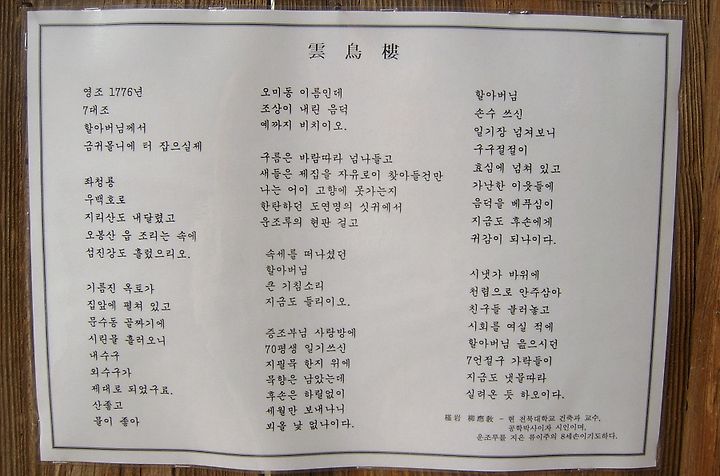 雲鳥樓
영조 1776년
7대조
할아버님께서
금귀몰니에 터 잡으실제
좌청룡
우백호로
지리산도 내달렸고
오봉산 읍 조리는 속에
섬진강도 흘렀으리오.
기름진 옥토가
집앞에 펼쳐 있고
문수동 골짜기에
시린물 흘러오니
내수구
외수구가
제대로 되었구료.
산좋고
물이 좋아
오미동 이름인데
조상이 내린 음덕
예까지 비치이오.
구름은 바람따라 넘나들고
새들은 제집을 자유로이 찾아들건만
나는 어이 고향에 못가는지
한탄하던 도연명의 싯귀에서
운조루의 현판 걸고
속세를 떠나셨던
할아버님
큰 기침소리
지금도 들리이오.
증조부님 사랑방에
70평생 일기쓰신
지필묵 한지 위에
묵향은 남았는데
후손은 하릴없이
세월만 보내나니
뵈올 낯 없나이다.
할아버님
손수 쓰신
일기장 넘겨보니
구구절절이
효심에 넘쳐 있고
가난한 이웃들에
음덕을 베푸심이
지금도 후손에게
귀감이 되나이다.
시냇가 바위에
천렵으로 안주삼아
친구들 불러놓고
시회를 여실 적에
할아버님 읊으시던
7언절구 가락들이
지금도 냇물따라
실려온 듯 하오이다.
柳應敎 - 현 전북대학교 건축과 교수,
공학박사이자 시인이며,
운조루를 지은 류이주의 8세손이기도하다.